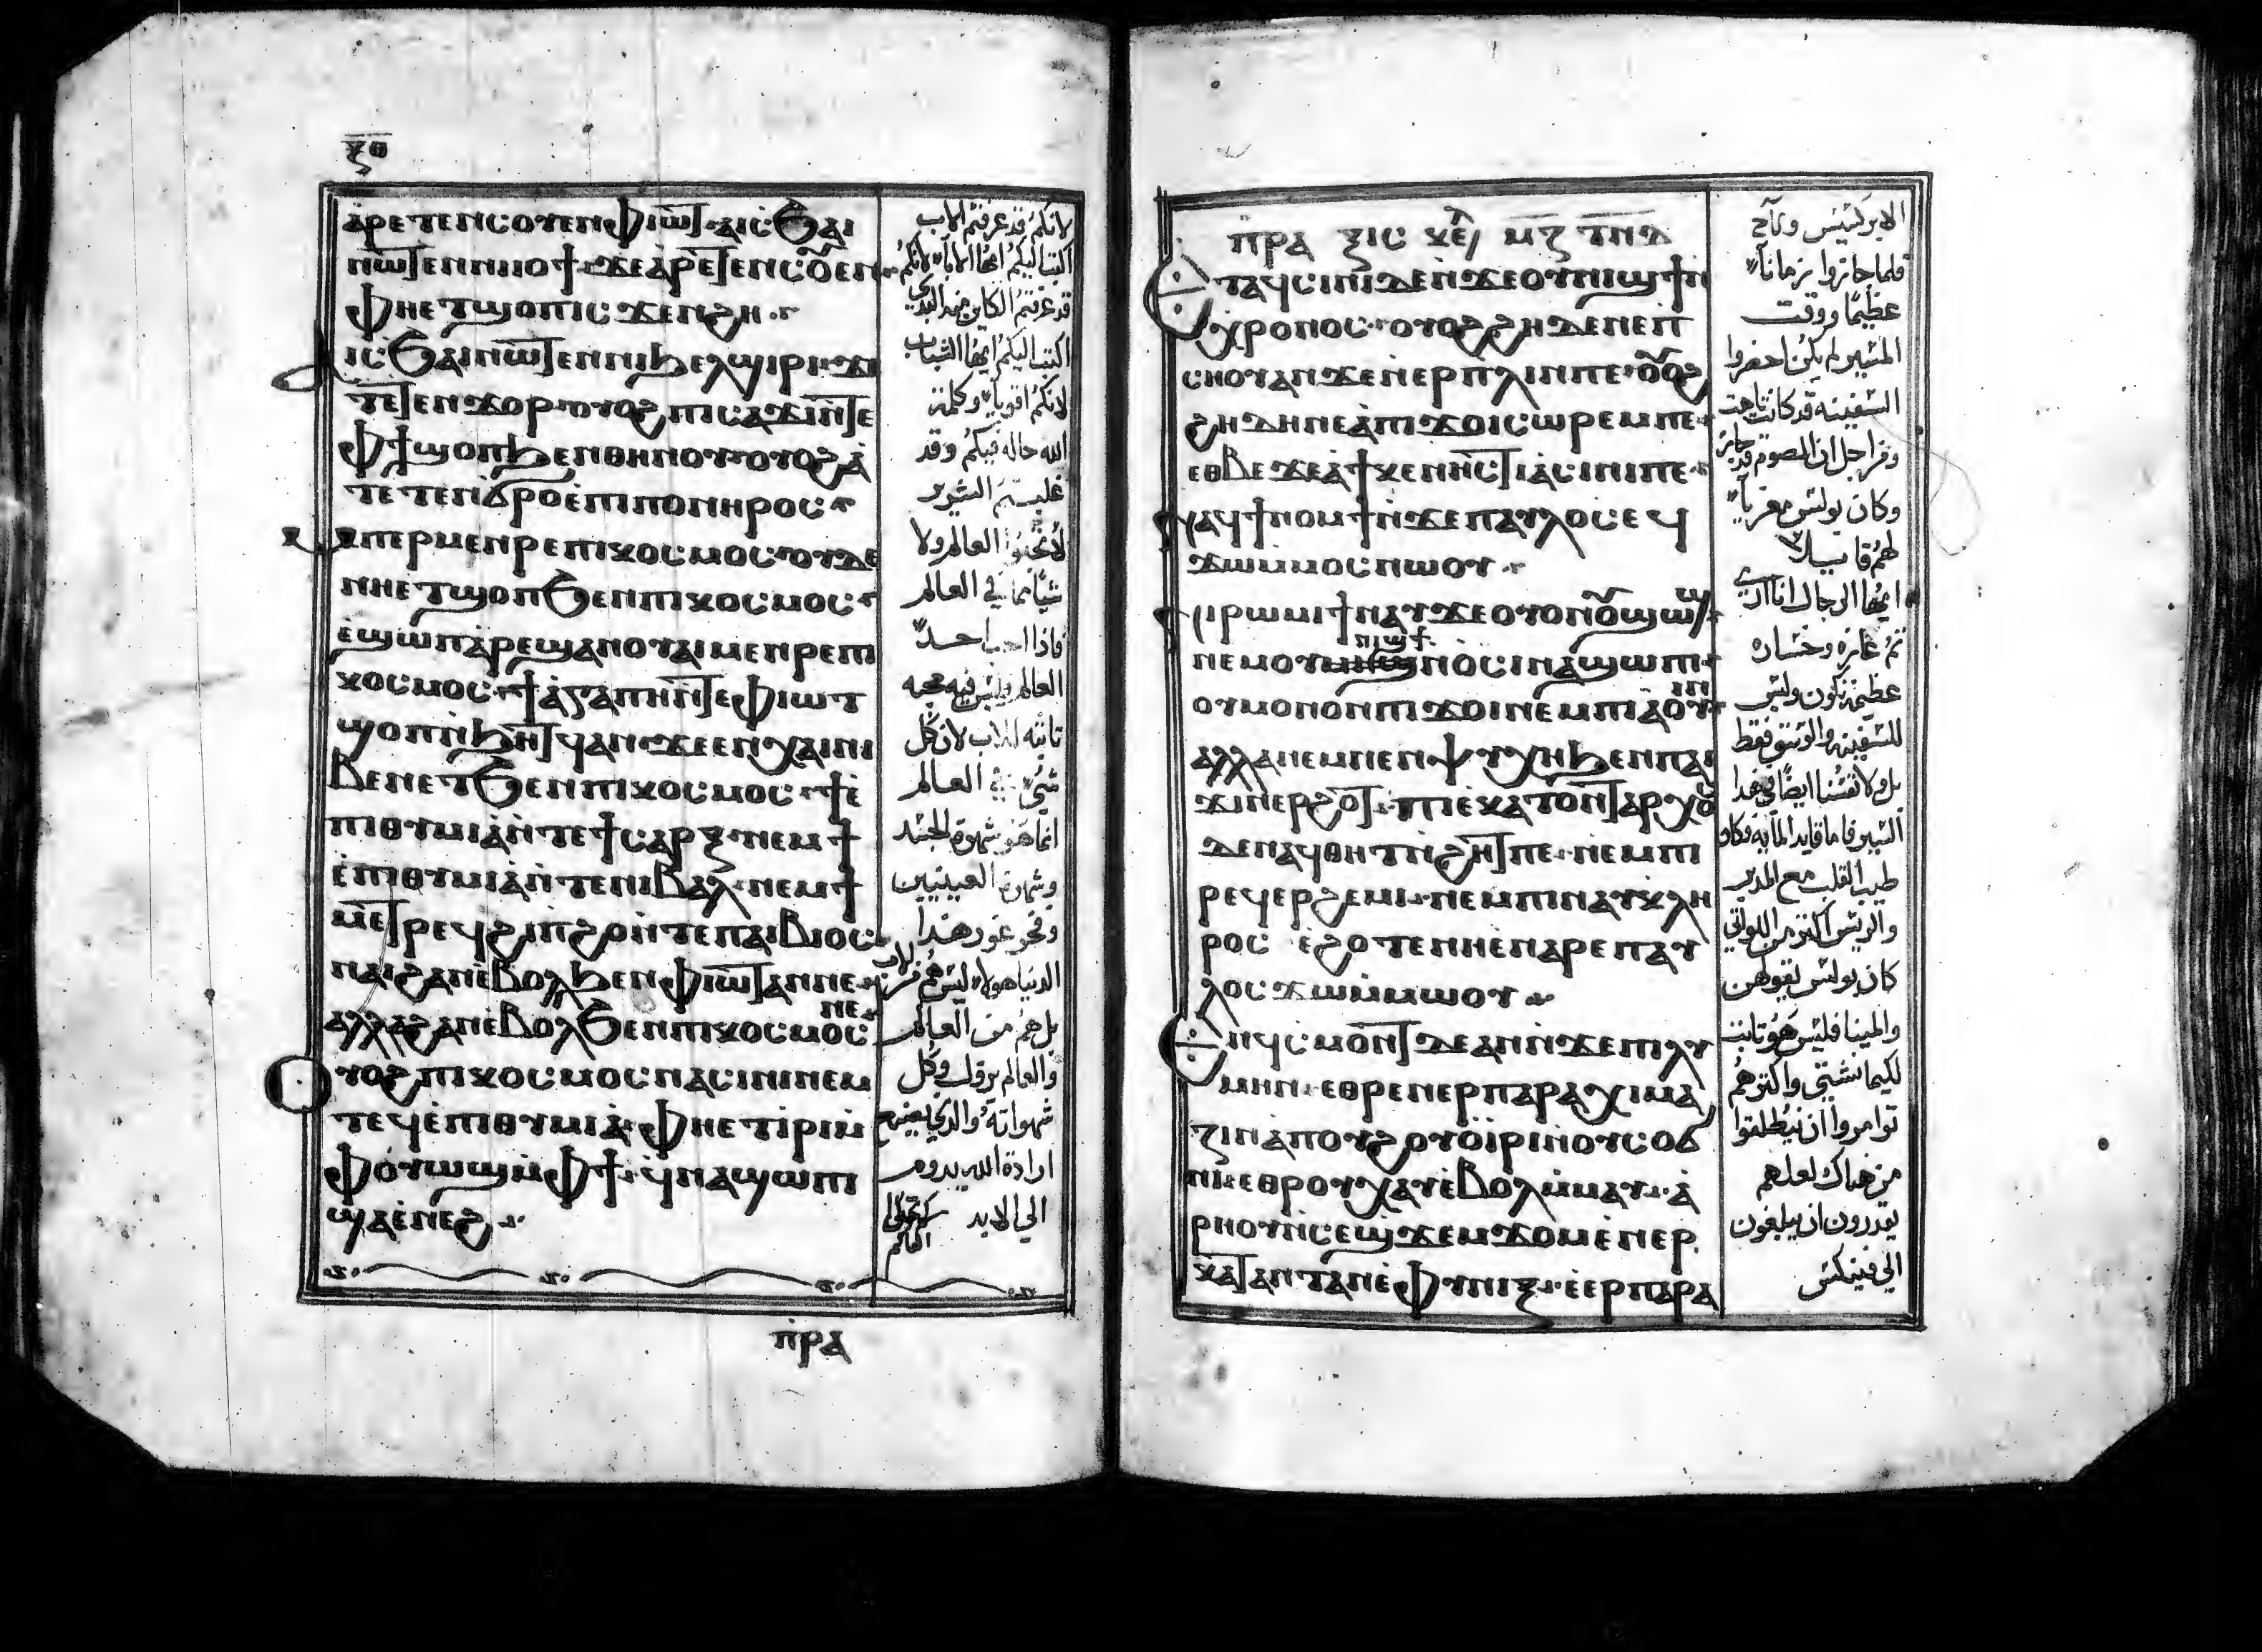 ⲝⲑ
ⲁⲣⲉⲧⲉⲛⲥⲟⲩⲉⲛⲫⲓⲱⲧ ⲁⲓⲥϧⲁⲓ
ⲛⲱⲧⲉⲛⲛⲓⲓⲟϯ ϫⲉⲁⲣⲉⲧⲉⲛⲥⲟⲩⲉⲛ
ⲫⲏⲉⲧϣⲟⲡⲓⲥϫⲉⲛϩⲏ
ⲓⲥϧⲁⲓⲛⲱⲧⲉⲛⲛⲓϧⲉⲗϣⲓⲣⲓ ϫⲉ
ⲧⲉⲧⲉⲛϫⲟⲣ ⲟⲩⲟϩ ⲡⲓⲥⲁϫⲓⲛⲧⲉ
ⲫϯϣⲟⲡϧⲉⲛⲑⲏⲛⲟⲩ ⲟⲩⲟϩⲁ
ⲧⲉⲧⲉⲛϭⲣⲟⲉⲡⲓⲡⲟⲛⲏⲣⲟⲥ
ⲙⲡⲉⲣⲙⲉⲛⲣⲉⲡⲓⲕⲟⲥⲙⲟⲥ ⲟⲩⲇⲉ
ⲛⲏⲉⲧϣⲟⲡϧⲉⲛⲡⲓⲕⲟⲥⲙⲟⲥ
ⲉϣⲱⲡⲁⲣⲉϣⲁⲛⲟⲩⲁⲓⲙⲉⲛⲣⲉⲡⲓ
ⲕⲟⲥⲙⲟⲥ ϯⲁⲅⲁⲡⲏⲛⲧⲉⲫⲓⲱⲧ
ϣⲟⲡⲛϧⲏⲧϥⲁⲛ ϫⲉⲉⲛⲭⲁⲓⲛⲓ
ⲃⲉⲛⲉⲧϧⲉⲛⲡⲓⲕⲟⲥⲙⲟⲥ ϯⲉ
ⲡⲓⲑⲩⲙⲓⲁⲛⲧⲉϯⲥⲁⲣⲝ ⲛⲉⲙϯ
ⲉⲡⲓⲑⲩⲙⲓⲁⲛⲧⲉⲛⲓⲃⲁⲗ ⲛⲉⲙϯ
ⲙⲉⲧⲣⲉϥϩⲓⲡϩⲟⲛⲧⲉⲡⲁⲓⲃⲓⲟⲥ
ⲛⲁⲓϩⲁⲛⲉⲃⲟⲗϧⲉⲛⲫⲓⲱⲧⲁⲛⲛⲉ
ⲁⲗⲗⲁϩⲁⲛⲉⲃⲟⲗϧⲉⲛⲡⲓⲕⲟⲥⲙⲟⲥ ⲛⲉ
ⲟⲩⲟϩ ⲡⲓⲕⲟⲥⲙⲟⲥⲛⲁⲥⲓⲛⲓⲛⲉⲙ
ⲧⲉϥⲉⲡⲓⲑⲩⲙⲓⲁ ⲫⲏⲉⲧⲓⲣⲓⲙ
ⲫⲟⲩⲱϣⲙⲫϯ ϥⲛⲁϣⲱⲡⲓ
ϣⲁⲉⲛⲉϩ
لانكم قد عرفتم الاب
اكتب اليكم ايها الابآء لانكم
قد عرفتم الكاين منذ البدي
اكتب اليكم ايها الشباب
لانكم اقويآء وكلمة
الله حاله فيكم وقد
غلبتم الشرير
لا تحبوا العالم ولا
شياً مما في العالم
فاذا احب احد
العالم وليس فيه محبه
لان كل
شي في العالم
انما هو شهوة الجسد
وشهوة العينيين
وفخر
الدنيا هولاء ليس هم من الاب
بل هم من العالم
والعالم يزول وكل
شهواته والذي يصنع
ارادة الله يدوم
الي الابد
ⲡⲣⲁ
ⲡⲣⲁⲝⲓⲥ ⲕⲉ ⲙⲍ ⲧⲛⲇ
ⲉⲧⲁϥⲥⲓⲛⲓⲇⲉⲛϫⲉⲟⲩⲛⲓϣϯⲛ
ⲭⲣⲟⲛⲟⲥ ⲟⲩⲟϩϩⲏⲇⲉⲛⲉⲡ
ⲥⲏⲟⲩⲁⲛϫⲉⲛⲉⲣⲡⲗⲓⲛⲡⲉ ⲟⲩⲟϩ
ϩⲏⲇⲏⲛⲉⲁⲡⲓϫⲟⲓⲥⲱⲣⲉⲙⲡⲉ
ⲉⲑⲃⲉϫⲉⲁϯⲕⲉⲛⲏⲥⲧⲓⲁⲥⲓⲛⲓⲡⲉ
ⲛⲁϥϯⲛⲟⲙϯⲛϫⲉⲡⲁⲩⲗⲟⲥⲉϥ
ϫⲱⲙⲙⲟⲥⲛⲱⲟⲩ
ⲛⲓⲣⲱⲙⲓϯⲛⲁⲩϫⲉⲟⲩⲟⲛⲟⲩϣⲱϣ
ⲛⲉⲙⲟⲩⲛⲓϣϯⲛⲟⲥⲓⲛⲁϣⲱⲡⲓ
ⲟⲩⲙⲟⲛⲟⲛⲡⲓϫⲟⲓⲛⲉⲙⲡⲓⲁⲟⲩⲓⲛ
ⲁⲗⲗⲁⲛⲉⲙⲛⲉⲛⲯⲩⲭⲏϧⲉⲛⲡⲁⲓ
ϫⲓⲛⲉⲣϩⲱⲧ ⲡⲓⲉⲕⲁⲧⲟⲛⲧⲁⲣⲭⲟⲥ
ⲇⲉⲛⲁϥⲑⲏⲧⲛϩⲏⲧⲡⲉ ⲛⲉⲙⲡⲓ
ⲣⲉϥⲉⲣϩⲉⲙⲓ ⲛⲉⲙⲡⲓⲛⲁⲩⲕⲗⲏ
ⲣⲟⲥ ⲉϩⲟⲧⲉⲛⲏⲉⲛⲁⲣⲉⲡⲁⲩ
ⲗⲟⲥϫⲱⲙⲙⲱⲟⲩ
ⲉⲛϥⲥⲙⲟⲛⲧⲇⲉⲁⲛⲛϫⲉⲡⲓⲗⲩ
ⲙⲏⲛ ⲉⲑⲣⲉⲛⲉⲣⲡⲁⲣⲁⲭⲓⲙⲁ
ⲍⲓⲛⲁⲡⲟⲩϩⲟⲩⲟⲓⲣⲓⲛⲟⲩⲥⲟϭ
ⲛⲓ ⲉⲑⲣⲟⲩⲭⲁⲩⲉⲃⲟⲗⲙⲙⲁⲩ ⲁ
ⲣⲏⲟⲩⲛⲥⲉϣϫⲉⲙϫⲟⲙⲉⲛⲉⲣ
ⲕⲁⲧⲁⲛⲧⲁⲛⲉⲫⲩⲛⲓⲝ ⲉⲉⲣⲡⲁⲣⲁ
الابركسيس
فلما جازوا زماناً
عظيماً ووقت
المسير لم يكن احفروا
السفينه قد كانت تاهت
من اجل ان الصوم قد جاز
وكان بولس معزياً
لهم قايلاً
ايها الرجال انا اري
ثم وخساره
عظيمة تكون وليس
للسفينه والوسق فقط
بل ولانفسنا ايضاً في هذا
السير فاما قايد المايه فكان
طيب القلب مع المدبر
والريس اكثر من اللواتي
كان بولس يقولهن
والمينا فليس هو ثابت
لكيما نشتي واكثرهم
توامروا ان ينطلقوا
من هناك لعلهم
يقدرون ان يبلغون
الي فينكس